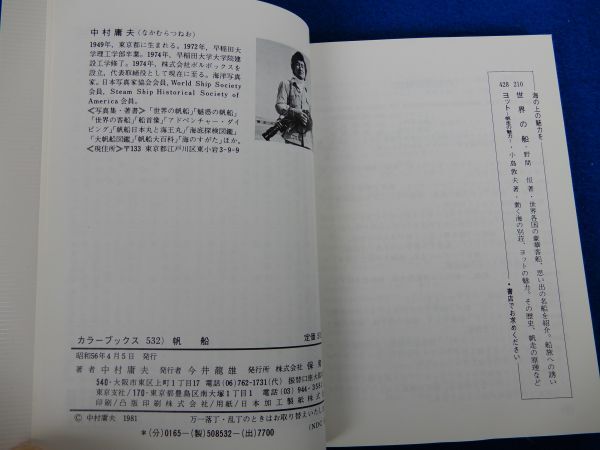 中村庸夫（なかむらつねお）
1949年，東京都に生まれる。1972年，早稲田大
学理工学部卒業。1974年，早稲田大学大学院建
設工学修了。1974年，株式会社ボルボックスを
設立，代表取締役として現在に至る。海洋写真
家。日本写真家協会会員，World Ship Society
会員，Steam Ship Historical Society of
America 会員。
≪写真集・著書≫「世界の帆船」「魅惑の帆船」
「世界の客船」「船首像」「アドベンチャー・ダイ
ビング」「帆船日本丸と海王丸」「海底探検図鑑」
「大帆船図鑑」「帆船大百科」「海のすがた」ほか。
≪現住所≫〒133 東京都江戸川区東小岩3-9-9
カラーブックス 532） 帆 船 定価
昭和56年4月5日 発行
著者 中村庸夫 発行者 今井龍雄 発行所 株式会社 保
540-大阪市東区上町1丁目17 電話(06)762-1731(代) 振替口座大阪
東京支社/170-東京都豊島区南大塚1丁目1 電話(03)944-
印刷/凸版印刷株式会社/用紙/日本加工製紙株式
© 中村庸夫 1981 万一落丁・乱丁のときはお取り替えいたし
＊(分)0165-(製)508532-(出)7700 (NDC
海の上の魅力を
210 世界の船・野間 恒著・世界各国の豪華客船、思い出の名船を紹介。船旅への誘い
428 ヨット―帆走の魅力―・小島敦夫著・動く海の別荘、ヨットの魅力、その歴史、帆走の原理など
・書店でお求めください